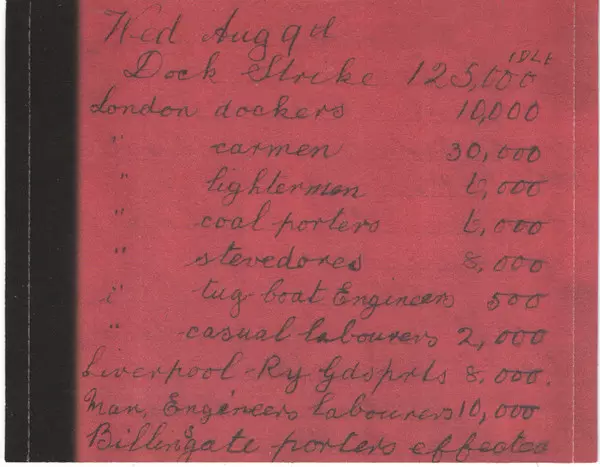 Wed Aug 9d
IDLE
Dock Strike 125,000
London dockers 10,000
" carmen 30,000
" lightermen 6,000
" coal porters 6,000
" stevedores 8,000
" tug boat Engineers 500
" casual labourers 2,000
Liverpool Ry Gdsprts 8.000.
Man, Engineers labourers 10,000
Billingate porters effected